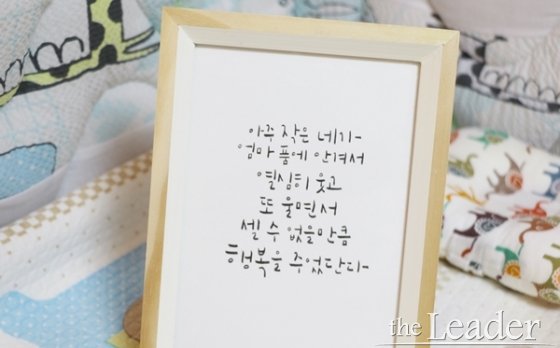 아주 작은 네가
엄마 품에 안겨서
열심히 웃고
또 울면서
셀 수 없을만큼
행복을 주었단다
the Leader